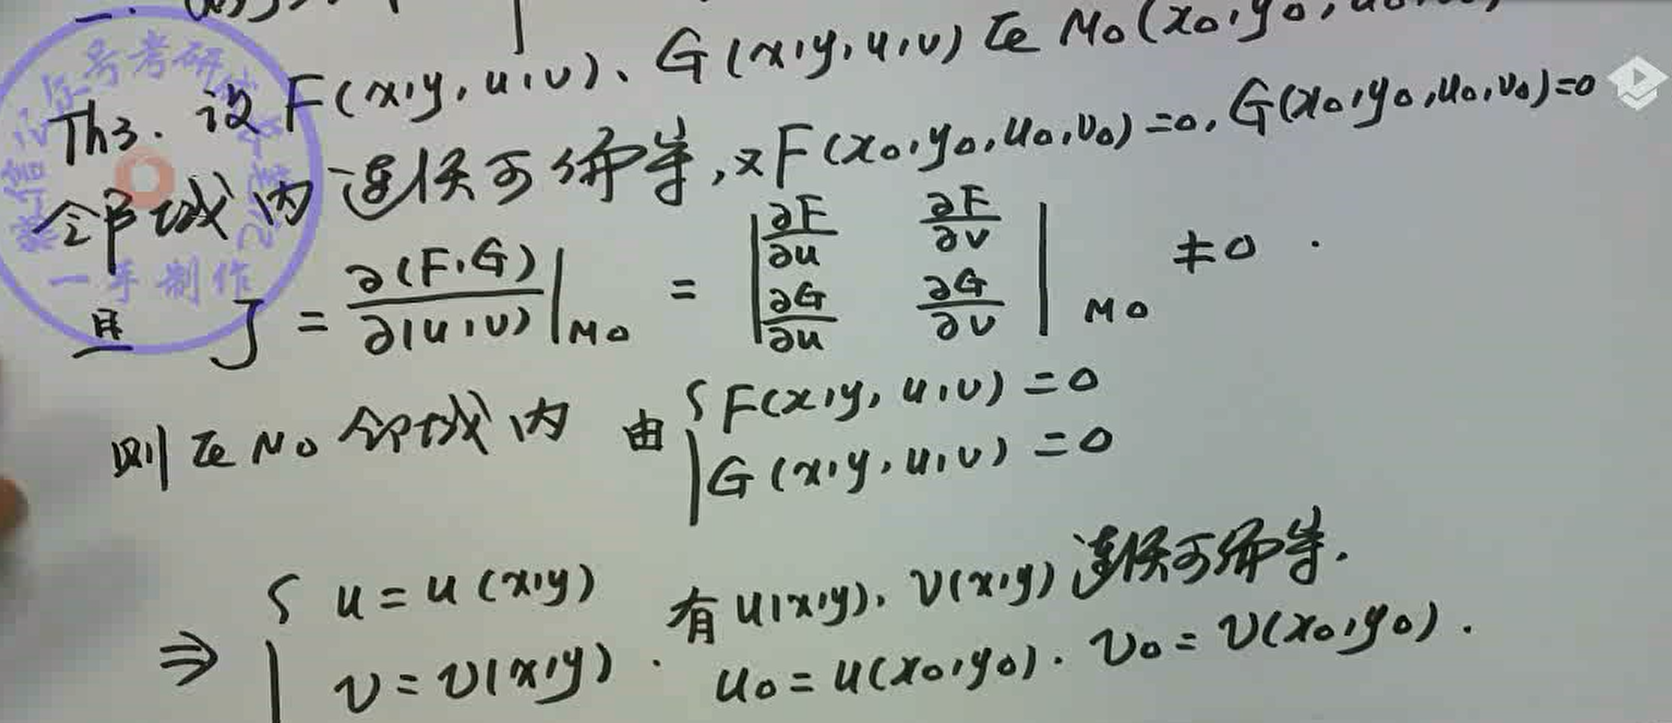 Th3. 设 F(x,y,u,v)、G(x,y,u,v) 在 M0(x0,y0,
邻域内连续可偏导,又F(x0,y0,u0,v0)=0,G(x0,y0,u0,v0)=0
且 J = ∂(F,G)/∂(u,v)|M0 = |∂F/∂u ∂F/∂v ∂G/∂u ∂G/∂v|M0 ≠0.
则在M0邻域内 由{F(x,y,u,v)=0
G(x,y,u,v)=0
⇒ {u=u(x,y) 有u(x,y),v(x,y)连续可偏导.
v=v(x,y). u0=u(x0,y0). v0=v(x0,y0).
一手制作